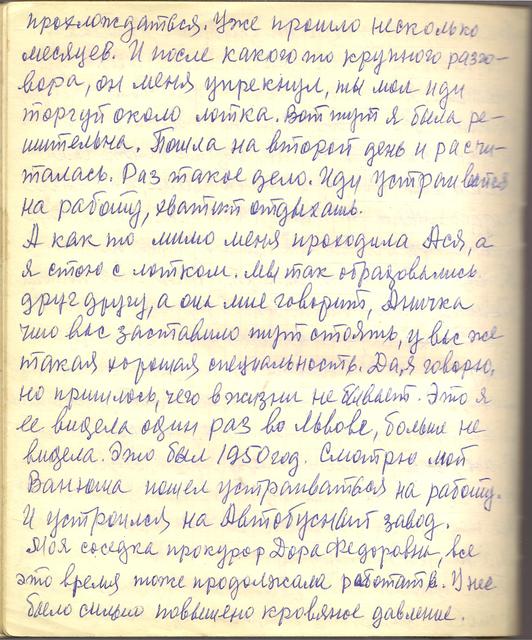 прохлождаться. Уже прошло несколько
месяцев. И после какого то крупного разго-
вора, он меня упрекнул, ты мол иди
торгуй около лотка. Вот тут я была ре-
шительна. Пошла на второй день и расчи-
талась. Раз такое дело. Иди устраивайся
на работу, хватит отдыхать.
А как то мимо меня проходила Ася, а
я стою с лотком. Мы так обрадовались
друг другу, а она мне говорит, Аничка
что вас заставило тут стоять, у вас же
такая хорошая специальность. Да, я говорю,
но пришлось, чего в жизни не бывает. Это я
ее видела один раз во Львове, больше не
видела. Это был 1950 год. Смотрю мой
Ванюша пошел устраиваться на работу.
И устроился на Автобусный завод.
Моя соседка прокурор Дора Федоровна, все
это время тоже продолжала работать. У нее
было сильно повышено кровяное давление.